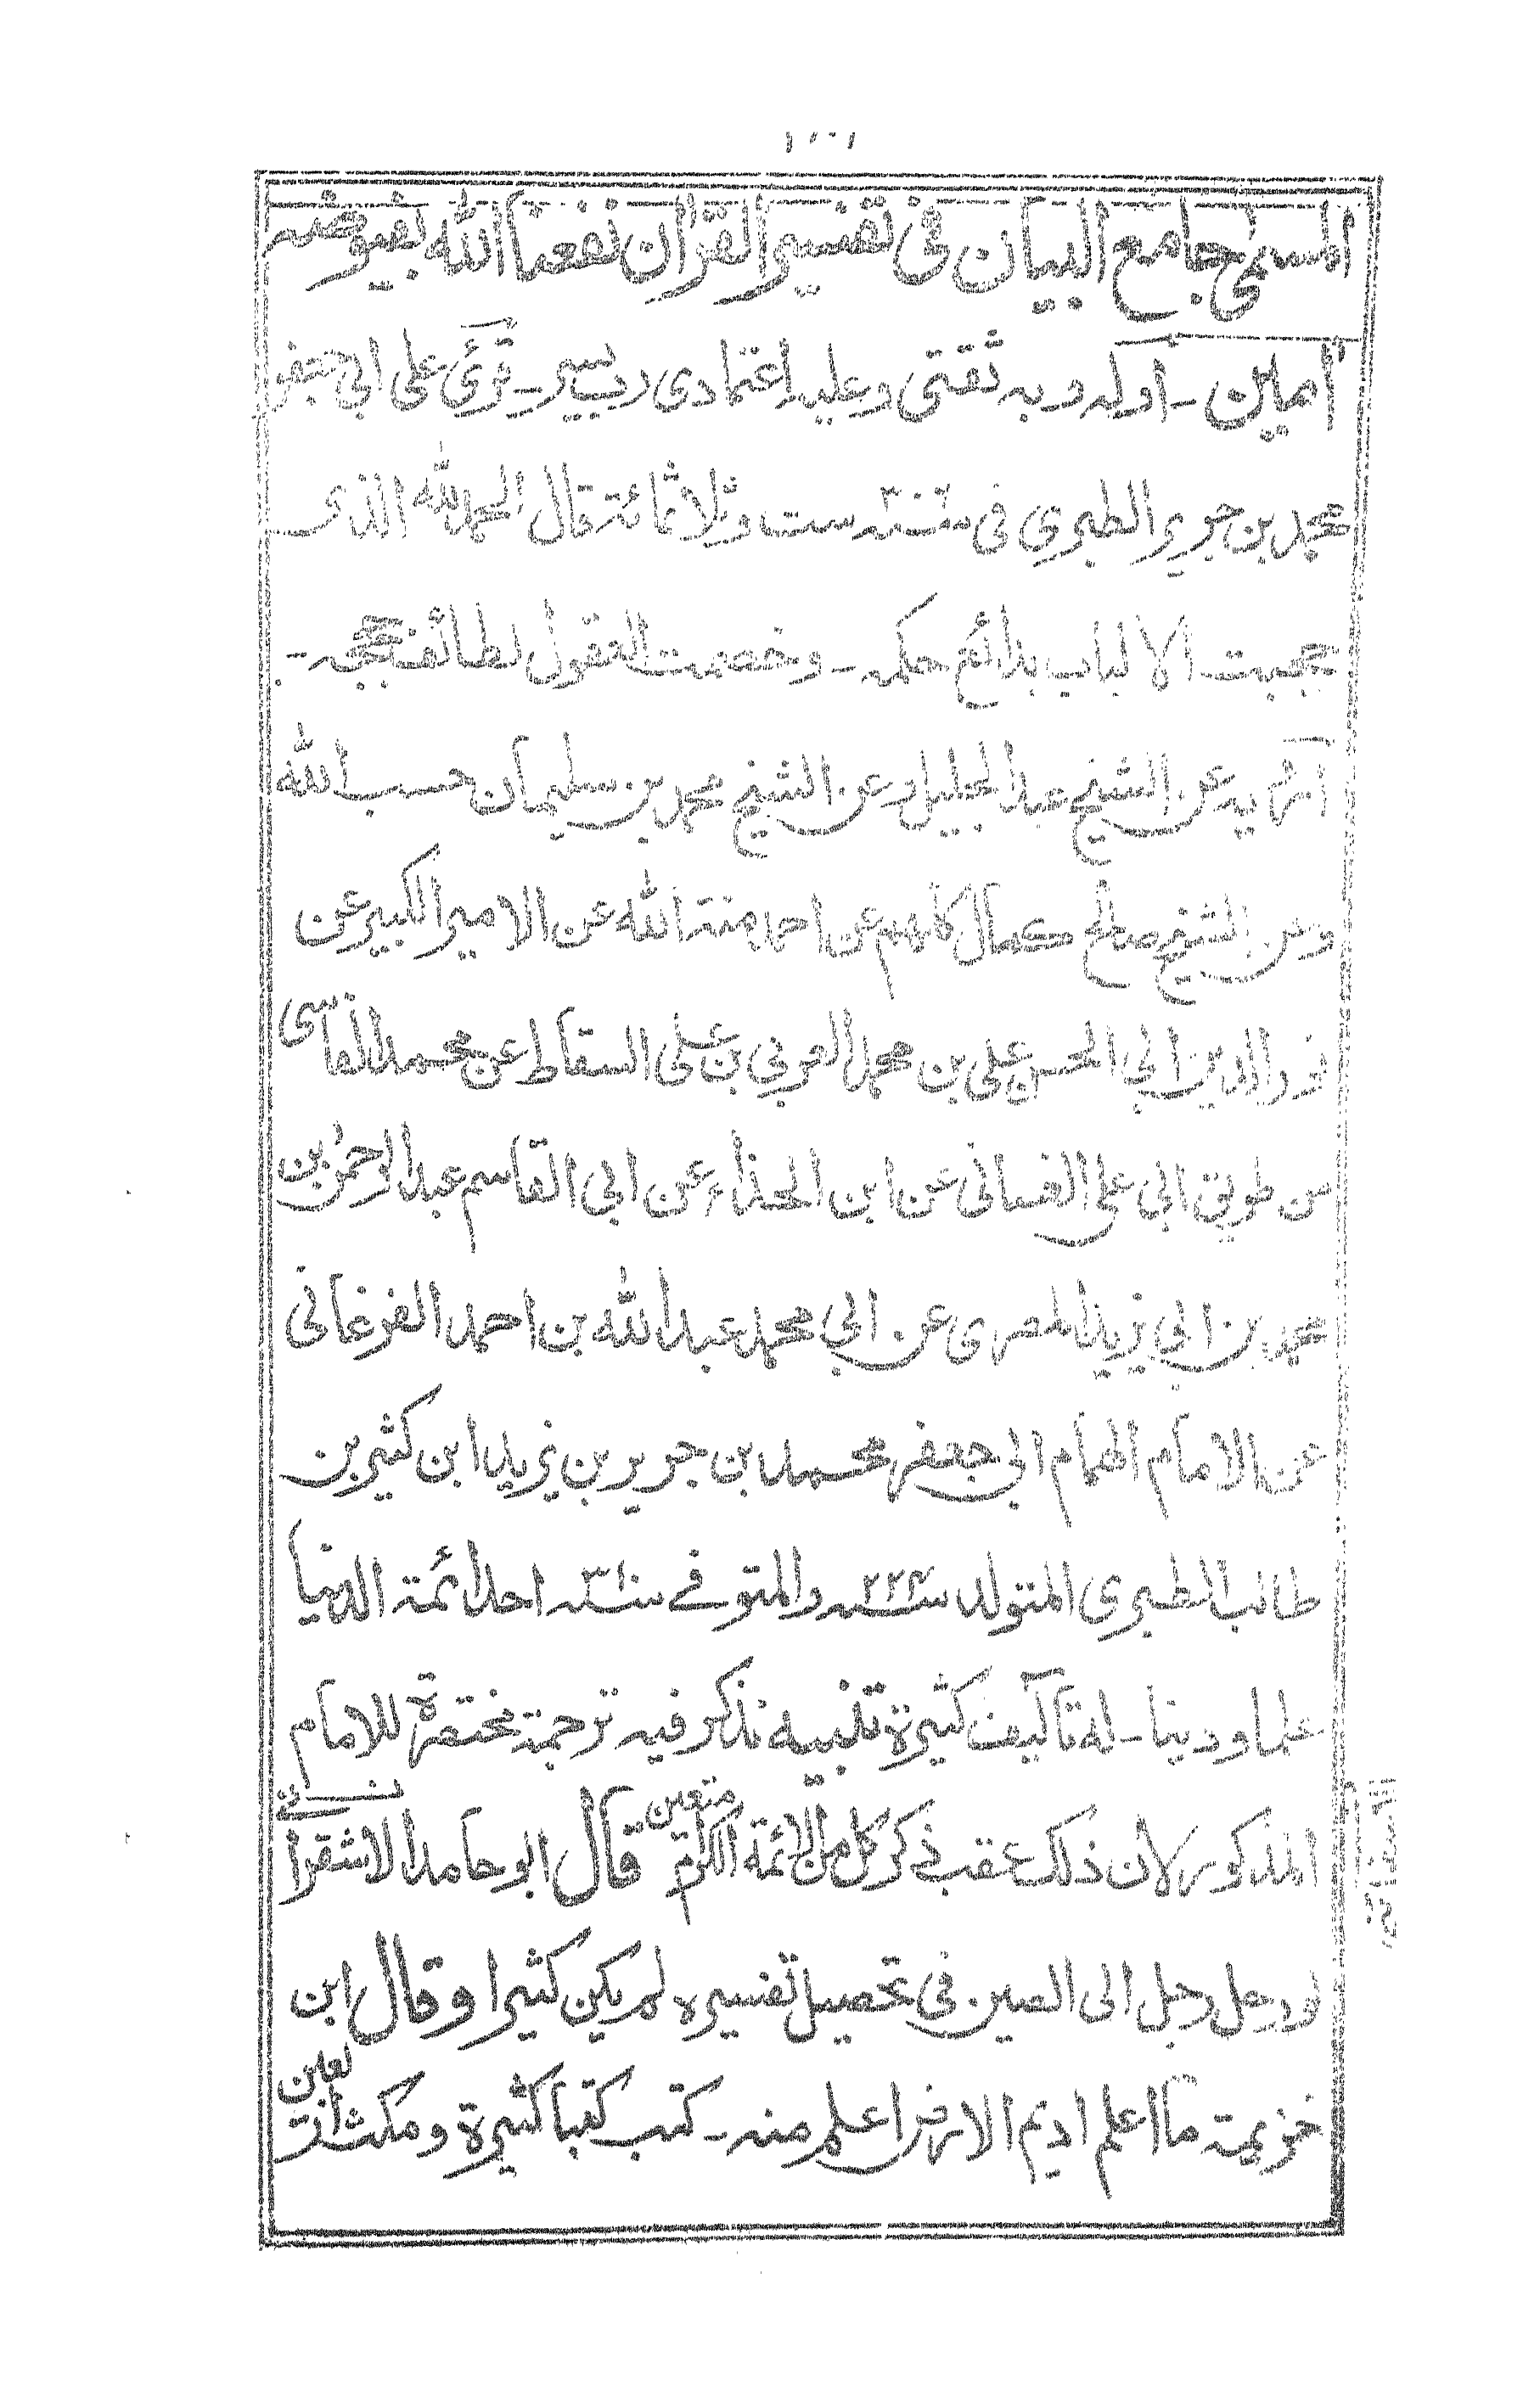 المسمى جامع البيان فى تفسير القرآن نفعنا الله بفيوضه
آمين ـ اوله وبه ثقتى وعليه اعتمادى رب يسر ـ قرئ على ابي جعفر
محمد بن جرير الطبري فى سنة ٣٠٦ ست وثلاثمائة قال الحمد لله الذى
حجبت الالباب بدائع حكمه ـ وخصمت العقول لطائف حججه ـ
ارويه عن الشيخ عبد الجليل وعن الشيخ محمد بن سليمان حسب الله
وعن الشيخ صالح كمال كلهم عن احمد منة الله عن الامير الكبير عن
نور الدين ابي الحسن على بن محمد العربي بن على السقاط عن محمد الفاسى
من طريق ابي على الغسانى عن ابن الحذاء عن ابي القاسم عبد الرحمن بن
محمد بن ابي يزيد المصرى عن ابي محمد عبد الله بن احمد الفرغانى
عن الامام الهمام ابي جعفر محمد بن جرير بن يزيد ابن كثير بن
طالب الطبرى المتولد سنة ٢٢٤ والمتوفے سنة ٣١٠ احد ائمة الدنيا
علما ودينا ـ له تآليف كثيرة تنبيه نذكر فيه ترجمة مختصرة للامام
المذكور لان ذلك عقب ذكر كل من الائمة الكرام متعين قال ابو حامد الاسفرا
لو رحل رجل الى الصين فى تحصيل تفسيره لم يكن كثيرا وقال ابن
خزيمة ما اعلم اديم الارض اعلم منه ـ كتب كتبا كثيرة ومكث اربعين